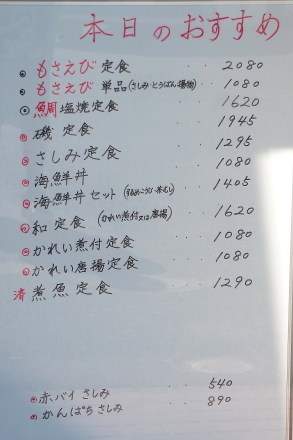 本日のおすすめ
もさえび定食 ・・ 2080
もさえび 単品(さしみ・とうばん・揚物) 1080
鯛塩焼定食 ・・ 1620
磯定食 ・・ 1945
さしみ定食 ・・ 1295
海鮮丼 ・・ 1080
海鮮丼セット ・・ 1405
和定食 (かれい煮付又は唐揚) ・・ 1620
かれい煮付定食 ・・ 1080
かれい唐揚定食 ・・ 1080
済 煮魚定食 ・・ 1290
赤バイ さしみ ・・ 540
かんぱちさしみ ・・ 890